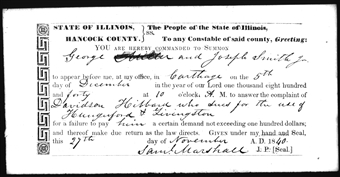 STATE OF ILLINOIS, } ss. The People of the State of Illinois,
HANCOCK COUNTY. To any Constable of said county, Greeting:
YOU ARE HEREBY COMMANDED TO SUMMON
George and Joseph Smith Jr
to appear before me, at my office, in Carthage on the 5th
day of December in the year of our Lord one thousand eight hundred
and forty at 10 o'clock A. M. to answer the complaint of
Davidson Hibbard who sues for the use of
Hungerford & Livingston
for a failure to pay him a certain demand not exceeding one hundred dollars;
and thereof make due return as the law directs. GIVEN under my hand and Seal,
this 27th day of November A. D. 1840.
Saml Marshall J. P. [Seal.]